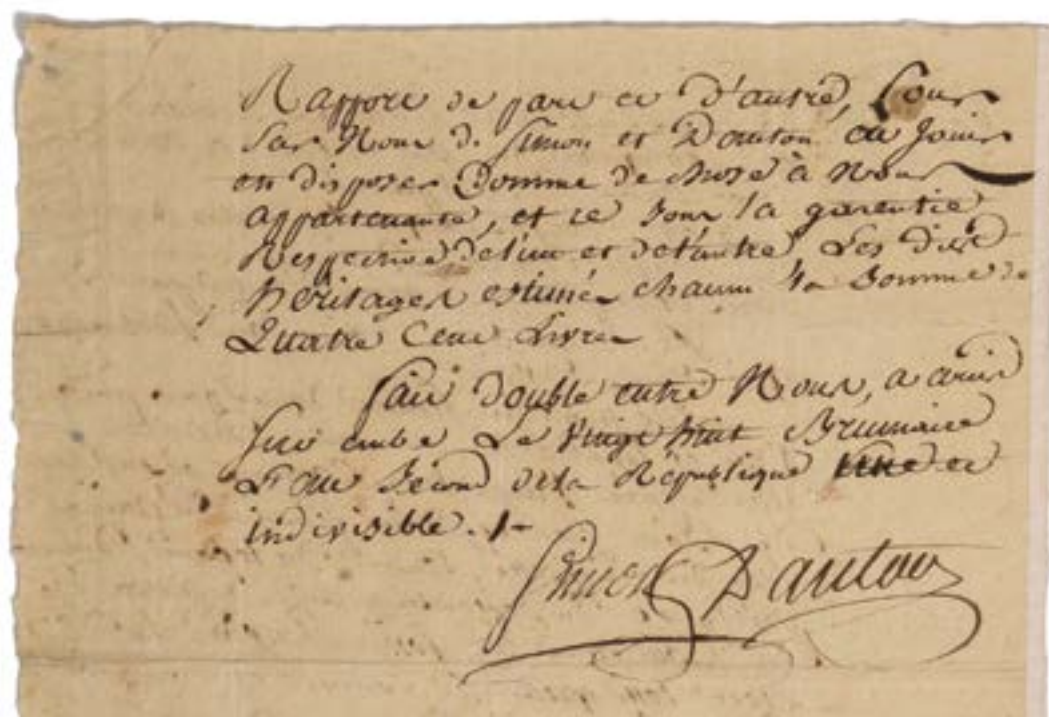 Rapport de part et d'autre, Pour
par Nous d. Simon et Danton en Jouir
en disposer Comme de chose à Nous
appartenante, et ce sous la garentie
Respective de l'un et de l'autre, Les dits
héritages estimés chacun la somme de
Quatre Cent Livres
fait double entre Nous, a arcis
sur aube Le vingt huit Brumaire
L'an Second de la République une et
indivisible. /-
Simon Danton